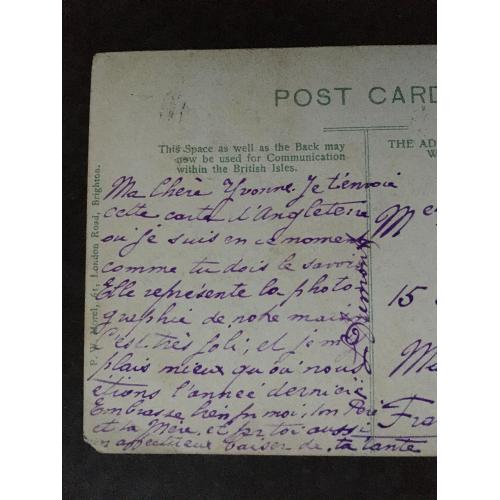 POST CARD
This Space as well as the Back may
now be used for Communication
within the British Isles.
THE AD
W
P. W. Morel, 61, London Road, Brighton.
Ma Chère Yvonne. Je t'envoie
cette carte d'Angleterre
ou je suis en ce moment
comme tu dois le savoir
Elle représente la photo
graphie de notre maison
C'est très joli, et je m'y
plais mieux qu'où nous
étions l'année dernière
Embrasse bien pr moi, ton Père
et ta Mère, et pr toi aussi
un affectueux baiser de ta tante
Me
15
Fra